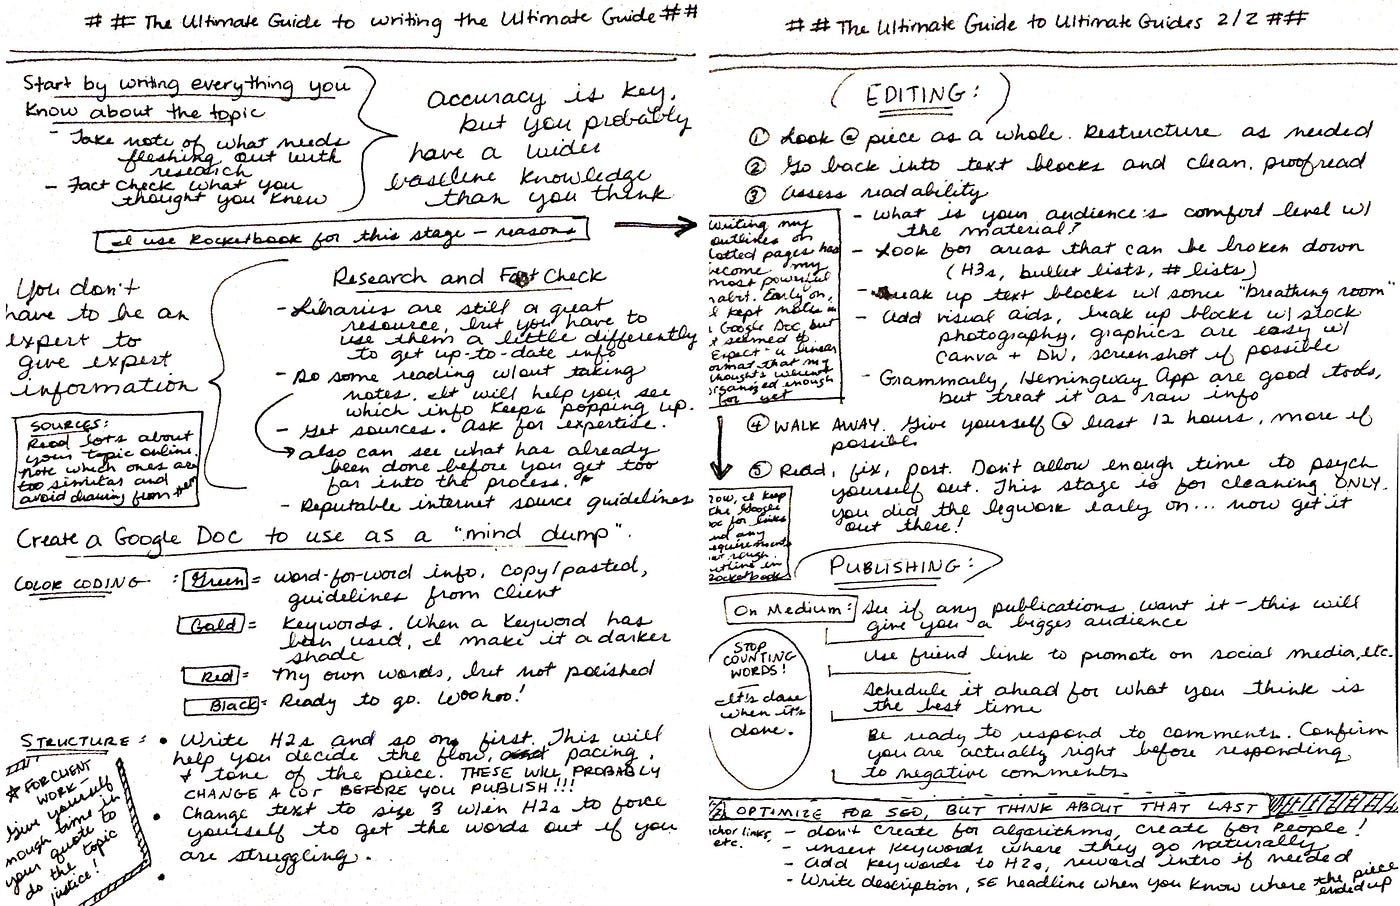 ## The Ultimate Guide to writing the Ultimate Guide ##
Start by writing everything you
know about the topic
- Take note of what needs
fleshing out with
research
- Fact check what you
thought you knew
Accuracy is key,
but you probably
have a wider
baseline knowledge
than you think
I use Rocketbook for this stage - reasons
You don't
have to be an
expert to
give expert
information
SOURCES:
Read lots about
your topic online.
Note which ones are
too similar and
avoid drawing from them
Research and Fact Check
- Libraries are still a great
resource, but you have to
use them a little differently
to get up-to-date info
- Do some reading w/out taking
notes. It will help you see
which info keeps popping up.
- Get sources. Ask for expertise.
also can see what has already
been done before you get too
far into the process.
- Reputable internet source guidelines
Create a Google Doc to use as a "mind dump".
COLOR CODING:
Green = word-for-word info, copy/pasted,
guidelines from client
Gold = Keywords. When a keyword has
been used, I make it a darker
shade
Red = My own words, but not polished
Black = Ready to go. Woohoo!
STRUCTURE:
• Write H2s and so on first. This will
help you decide the flow, pacing,
+ tone of the piece. THESE WILL PROBABLY
CHANGE A LOT BEFORE YOU PUBLISH!!!
• Change text to size 3 w/in H2s to force
yourself to get the words out if you
are struggling.
•
* FOR CLIENT
WORK -
Give yourself
enough time in
your quote to
do the topic
justice!
## The Ultimate Guide to Ultimate Guides 2/2 ##
EDITING:
① Look @ piece as a whole. Restructure as needed
② Go back into text blocks and clean, proofread
③ Assess readability
- What is your audience's comfort level w/
the material?
- Look for areas that can be broken down
(H3s, bullet lists, # lists)
- Break up text blocks w/ some "breathing room"
- Add visual aids, break up blocks w/ stock
photography, graphics are easy w/
Canva + DW, screenshot if possible
- Grammarly, Hemingway App are good tools,
but treat it as raw info
Writing my
outlines on
dotted pages has
become my
most powerful
habit. Early on,
I kept notes in
a Google Doc, but
it seemed to
expect a linear
format that my
thoughts weren't
organized enough
for yet
④ WALK AWAY. Give yourself @ least 12 hours, more if
possible
⑤ Read, fix, post. Don't allow enough time to psych
yourself out. This stage is for cleaning ONLY.
You did the legwork early on... now get it
out there!
Now, I keep
the Google
Doc for links
and any
requirements
rough
outline in
Rocketbook
PUBLISHING:
On Medium: See if any publications want it - this will
give you a bigger audience
Use friend link to promote on social media, etc.
Schedule it ahead for what you think is
the best time
Be ready to respond to comments. Confirm
you are actually right before responding
to negative comments
STOP
COUNTING
WORDS!
It's done
when it's
done.
OPTIMIZE FOR SEO, BUT THINK ABOUT THAT LAST
anchor links,
etc.
- don't create for algorithms, create for People!
- insert keywords where they go naturally
- add keywords to H2s, reword intro if needed
- Write description, SE headline when you know where the piece
ended up